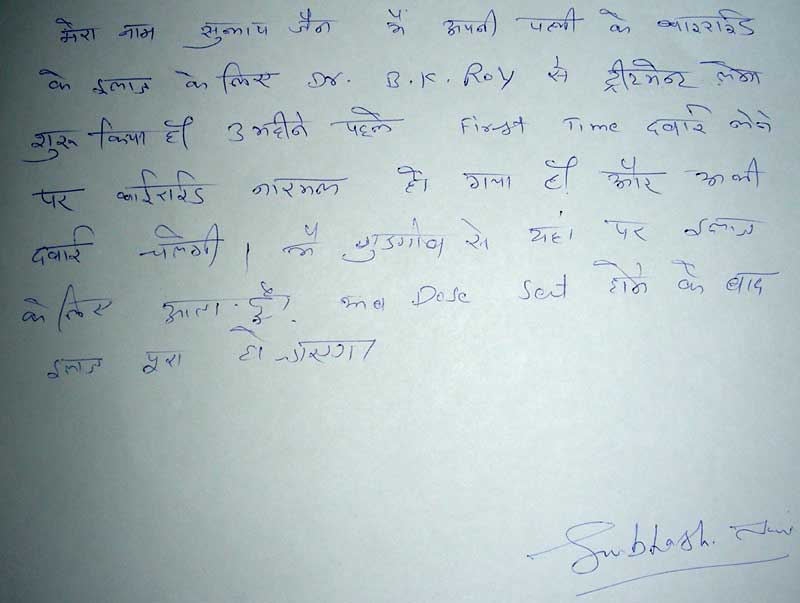 मेरा नाम सुभाष जैन मैं अपनी पत्नी के थायराईड
के इलाज के लिए Dr. B.K. Roy से ट्रीटमेन्ट लेना
शुरू किया है। 3 महीने पहले First Time दवाई लेने
पर थाईराईड नारमल हो गया है। और अभी
दवाई चलेगी। मैं गुड़गांव से यहां पर इलाज
के लिए आता हूँ। अब Dose Set होने के बाद
इलाज पूरा हो जाएगा
Subhash. Jain